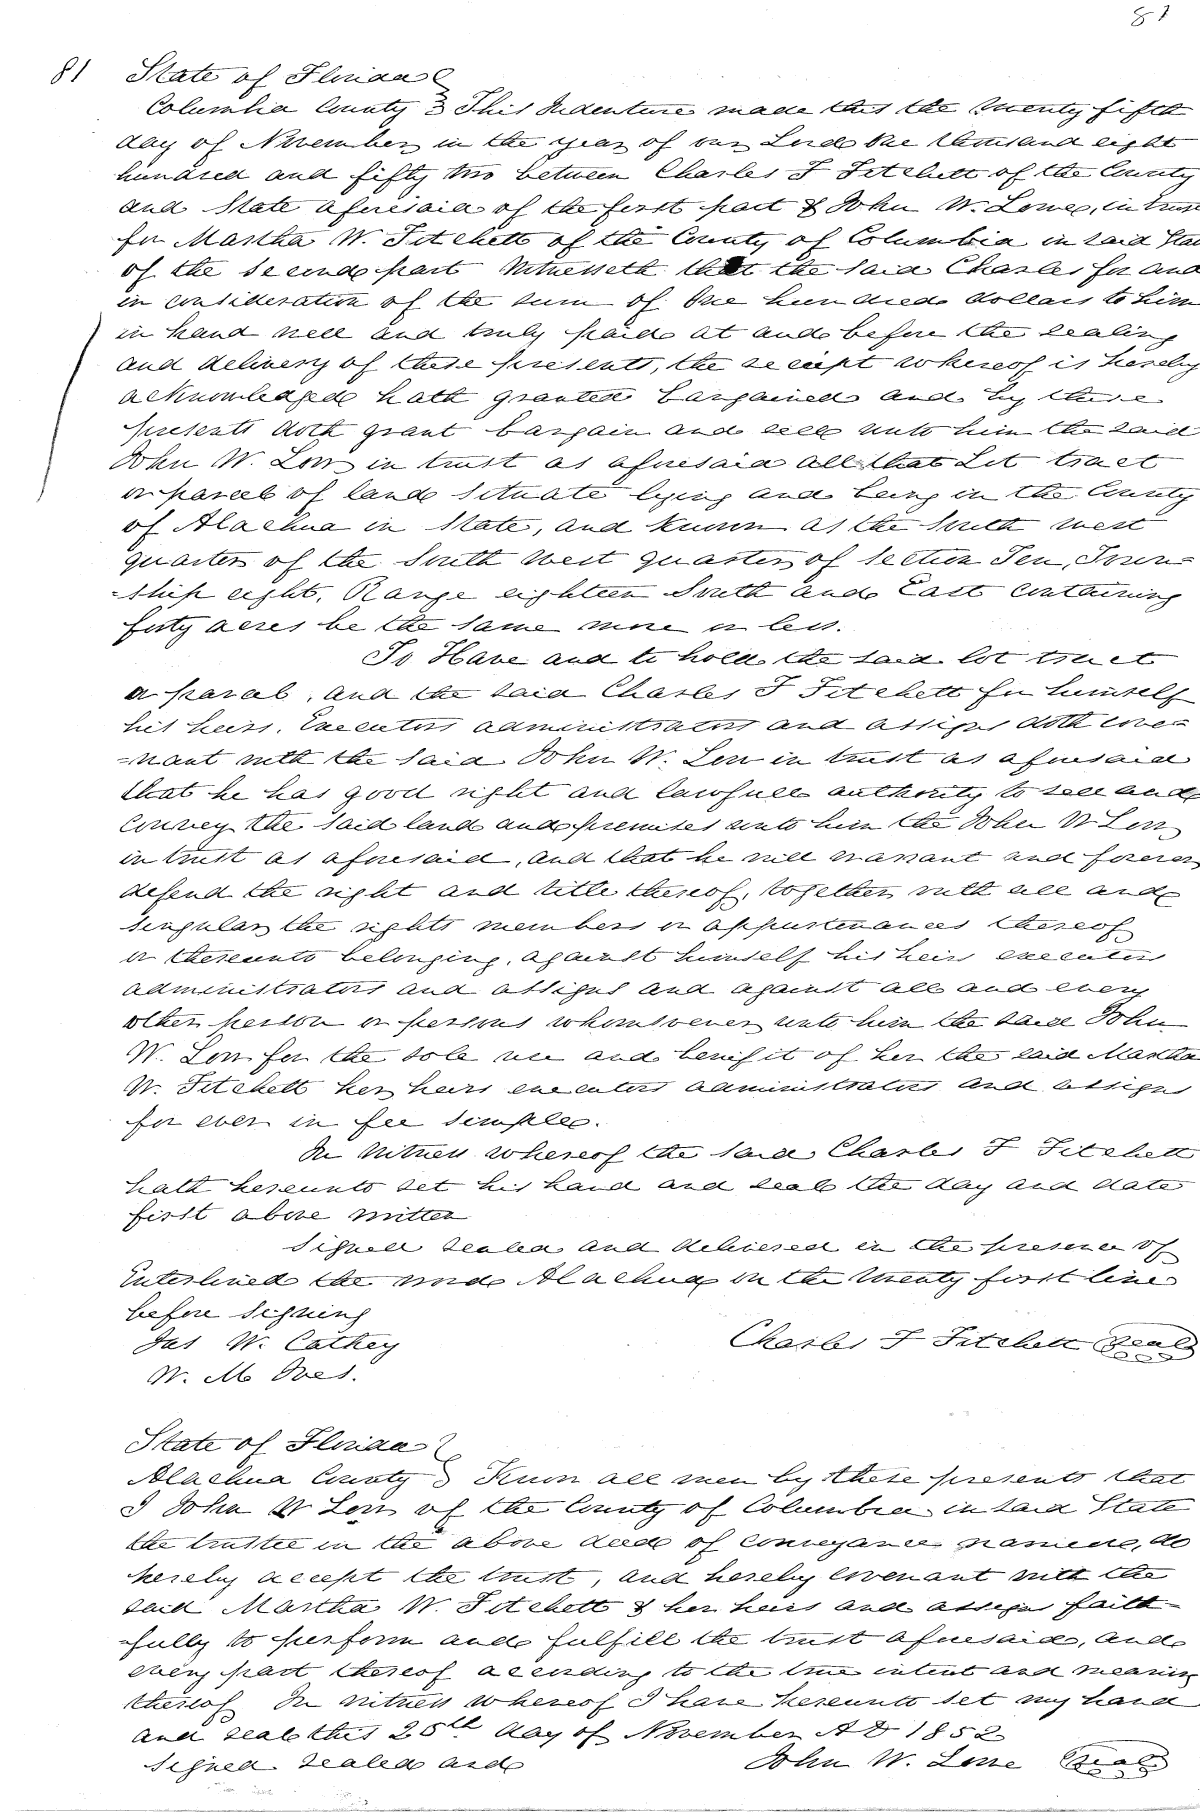 81
81 State of Florida
Columbia County } This Indenture made this the twenty fifth
day of November in the year of our Lord One thousand eight
hundred and fifty two between Charles F Fitchett of the County
and State aforesaid of the first part & John W. Lowe, in trust
for Martha W. Fitchett of the County of Columbia in said Stat
of the second part Witnesseth that the said Charles for and
in consideration of the sum of One hundred dollars to him
in hand well and truly paid at and before the sealing
and delivery of these presents, the receipt whereof is hereby
acknowledged hath granted bargained and by these
presents doth grant bargain and sell unto him the said
John W. Low in trust as aforesaid all that Lot tract
or parcel of land situate lying and being in the County
of Alachua in State, and known as the South west
quarter of the South West quarter of Section Ten, Town=
=ship eight, Range eighteen South and East containing
forty acres be the same more or less.
To Have and to hold the said lot tract
or parcel, and the said Charles F Fitchett for himself
his heirs, Executors administrators and assigns doth cove=
=nant with the said John W. Low in trust as aforesaid
that he has good right and lawfull authority to sell and
convey the said land and premises unto him the John W Low
in trust as aforesaid, and that he will warrant and forever
defend the right and title thereof, together with all and
singular the rights members or appurtenances thereof
or thereunto belonging, against himself his heirs executors
administrators and assigns and against all and every
other person or persons whomsoever unto him the said John
W. Low for the sole use and benifit of her the said Martha
W. Fitchett her heirs executors administrators and assigns
for ever in fee simple.
In Witness whereof the said Charles F Fitchett
hath hereunto set his hand and seal the day and date
first above written
Signed sealed and delivered in the presence of
Enterlined the word Alachua on the twenty first line
before signing
Jas W. Cathey Charles F Fitchett Seal
W. M. Ives.
State of Florida
Alachua County } Know all men by these presents that
I John W Low of the County of Columbia in said State
the trustee in the above deed of conveyance named, do
hereby accept the trust, and hereby covenant with the
said Martha W. Fitchett & her heirs and assigns faith=
=fully to perform and fulfill the trust aforesaid, and
every part thereof according to the true intent and meaning
thereof In witness whereof I have hereunto set my hand
and seal this 25th day of November AD 1852
Signed sealed and John W. Lowe Seal